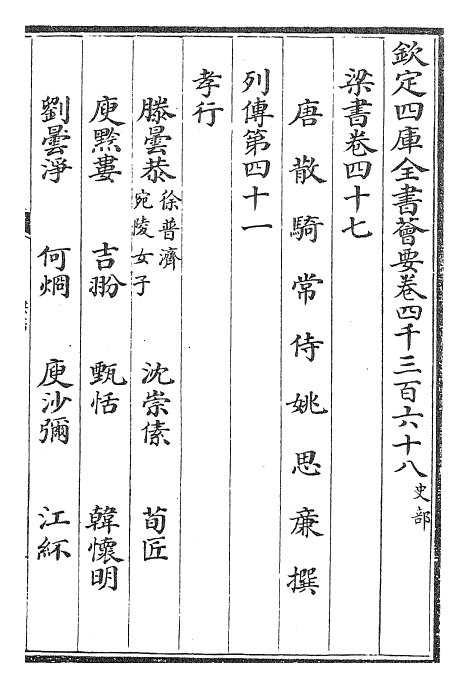 欽定四庫全書薈要卷四千三百六十八 史部
梁書卷四十七
唐散騎常侍姚思廉撰
列傳第四十一
孝行
滕曇恭 徐普濟 宛陵女子 沈崇傃 荀匠
庾黔婁 吉翂 甄恬 韓懷明
劉曇淨 何烱 庾沙彌 江紑